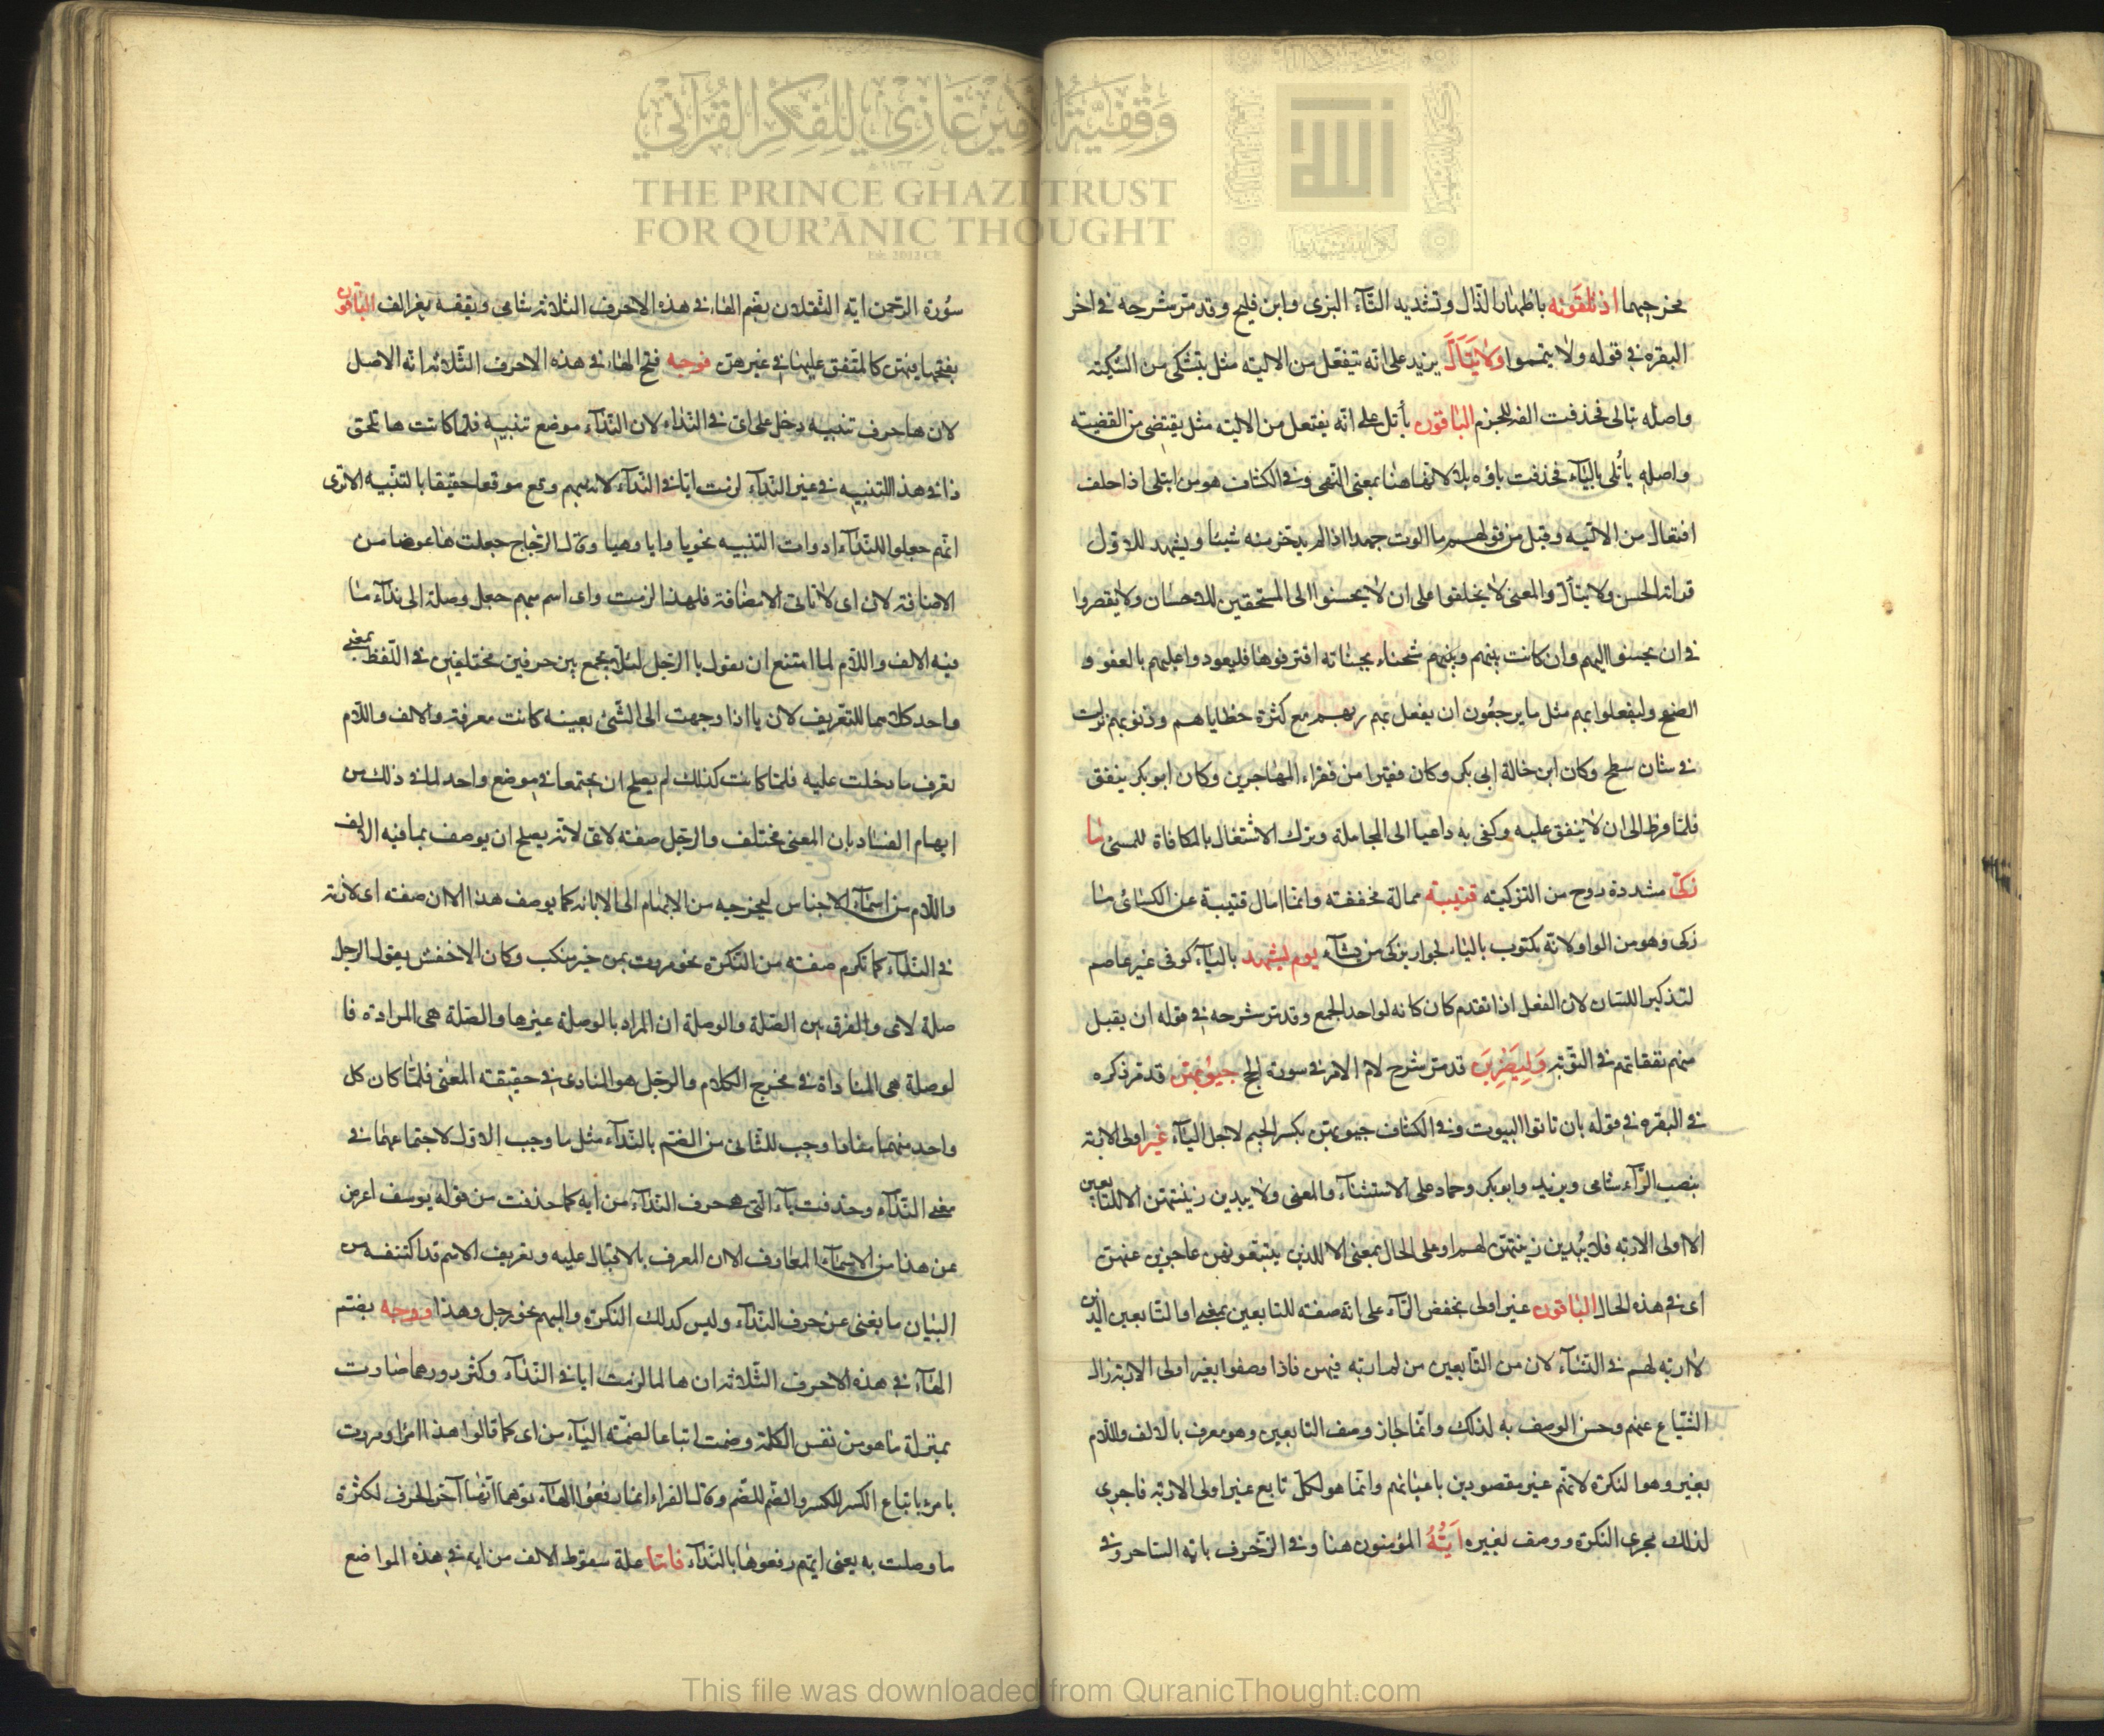 وَقْفِيَّةُ الأَمِيرْ غَازِي لِلْفِكْرِ القُرْآنِي
THE PRINCE GHAZI TRUST
FOR QUR'ĀNIC THOUGHT
مخرجيهما اذ تلقونه باظهار الذال وتشديد التاء البزى وابن فليح وقد مر شرحه فى اخر
البقره فى قوله ولا تيمموا ولا يتأل يزيد على انه يتفعل من الالية مثل يتشكى من الشكية
واصله يتالى فحذفت الفه للجزم الباقون يأتل على انه يفتعل من الالية مثل يقتضى من القضية
واصله يأتلى بالياء فحذفت ياؤه بلا لانها هنا بمعنى النهى وفى الكشاف هو من ايتلى اذا حلف
افتعال من الالية وقيل من قولهم ما الوت جهدا اذا لم يدخر منه شيئا ويشهد للاول
قراة الحسن ولا يتأل والمعنى لا يحلفوا على ان لا يحسنوا الى المستحقين للاحسان ولا يقصروا
فى ان يحسنوا اليهم وان كانت بينهم وبينهم شحناء بجناية اقترفوها فليعودوا عليهم بالعفو و
الصفح وليفعلوا بهم مثل ما يرجون ان يفعل بهم ربهم مع كثرة خطاياهم وذنوبهم نزلت
فى شان مسطح وكان ابن خالة ابى بكر وكان فقيرا من فقراء المهاجرين وكان ابو بكر ينفق
فلما فرط الى ان لا ينفق عليه وكفى به داعيا الى المجاملة وترك الاشتغال بالمكافاة للمسئ ما
زكى مشددة روح من التزكية قتيبة ممالة مخففة وانما امال قتيبة عن الكسائى ما
زكى وهو من الواو لانه مكتوب بالياء لجوار يزكى من يشاء يوم يشهد بالياء كوفى غير عاصم
لتذكير اللسان لان الفعل اذا تقدم كان كانه لواحد الجمع وقد مر شرحه فى قوله ان يقبل
منهم نفقاتهم فى التوبة وليضربن قد مر شرح لام الامر فى سورة الحج جيوبهن قد مر ذكره
فى البقره فى قوله بان تاتوا البيوت وفى الكشاف جيوبهن بكسر الجيم لاجل الياء غير اولى الاربة
بنصب الراء شامى ويزيد وابو بكر وحماد على الاستثناء والمعنى ولا يبدين زينتهن الا للتابعين
الا اولى الاربه فلا يبدين زينتهن لهم او على الحال بمعنى الا للذين يتبعونهن عاجزين عنهن
اى فى هذه الحال الباقون غير اولى بخفض الراء على انه صفة للتابعين بمعنى او التابعين الذين
لا اربه لهم فى النساء لان من التابعين من له اربه فيهن فاذا وصفوا بغير اولى الاربة زال
الشياع عنهم وحسن الوصف به لذلك وانما جاز وصف التابعين وهو معرف بالالف واللام
بغير وهو النكرة لانهم غير مقصودين باعيانهم وانما هو لكل تابع غير اولى الاربة فاجرى
لذلك مجرى النكرة ووصف بغير ايه المؤمنون هنا وفى الزخرف يا يه الساحر وفى
سورة الرحمن ايه الثقلان بضم الهاء فى هذه الاحرف الثلاثة شامى ويقف بغير الف الباقون
بفتحها فيهن كالمتفق عليها فى غيرهن فوجه فتح الهاء فى هذه الاحرف الثلاثة انه الاصل
لان ها حرف تنبيه دخل على اى فى النداء لان النداء موضع تنبيه فلما كانت ها تلحق
ذا فى هذا للتنبيه فى غير النداء لزمت ايا فى النداء لانه مبهم وقع موقعا حقيقا بالتنبيه الا ترى
انهم جعلوا للنداء ادوات التنبيه نحو يا وايا وهيا وقال الزجاج جعلت ها عوضا من
الاضافة لان اى لا تاتى الا مضافة فلهذا لزمت واى اسم مبهم جعل وصلة الى نداء ما
فيه الالف واللام لما امتنع ان نقول يا الرجل لئلا يجمع بين حرفين مختلفين فى اللفظ بمعنى
واحد كلاهما للتعريف لان يا اذا وجهت الى الشئ بعينه كانت معرفة والالف واللام
تعرف ما دخلت عليه فلما كانت كذلك لم يصلح ان يجتمعا فى موضع واحد لما فى ذلك من
ايهام الفساد بان المعنى مختلف والرجل صفة لاى لانه يصلح ان يوصف بما فيه الالف
واللام من اسماء الاجناس ليخرجه من الابهام الى الابانة كما يوصف هذا الا ان صفة اى لازمة
فى النداء كما تلزم صفة من النكرة نحو مررت بمن خير منك وكان الاخفش يقول الرجل
صلة لاى والفرق بين الصلة والوصلة ان المراد بالوصلة غيرها والصلة هى المرادة فا
لوصلة هى المناداة فى مخرج الكلام والرجل هو المنادى فى حقيقة المعنى فلما كان كل
واحد منهما منادا وجب للثانى من الضم بالنداء مثل ما وجب للاول لاجتماعهما فى
معنى النداء وحذفت ياء التى هى حرف النداء من ايه كما حذفت من قوله يوسف اعرض
عن هذا من الاسماء المعارف لان المعرف بالاقبال عليه وتعريف الاسم قد اكتنفه من
البيان ما يغنى عن حرف النداء وليس كذلك النكرة والمبهم نحو رجل وهذا ووجه بضم
الهاء فى هذه الاحرف الثلاثة ان ها لما لزمت ايا فى النداء وكثر دورها صارت
بمنزلة ما هو من نفس الكلمة وضمت اتباعا لضمة الياء من اى كما قالوا هذا امرؤ ومررت
بامرئ باتباع الكسر للكسر والضم للضم وقال الفراء انما رفعوا الهاء توهما انها آخر الحرف لكثرة
ما وصلت به يعنى ايهم رفعوها بالنداء فاما علة سقوط الالف من ايه فى هذه المواضع
This file was downloaded from QuranicThought.com